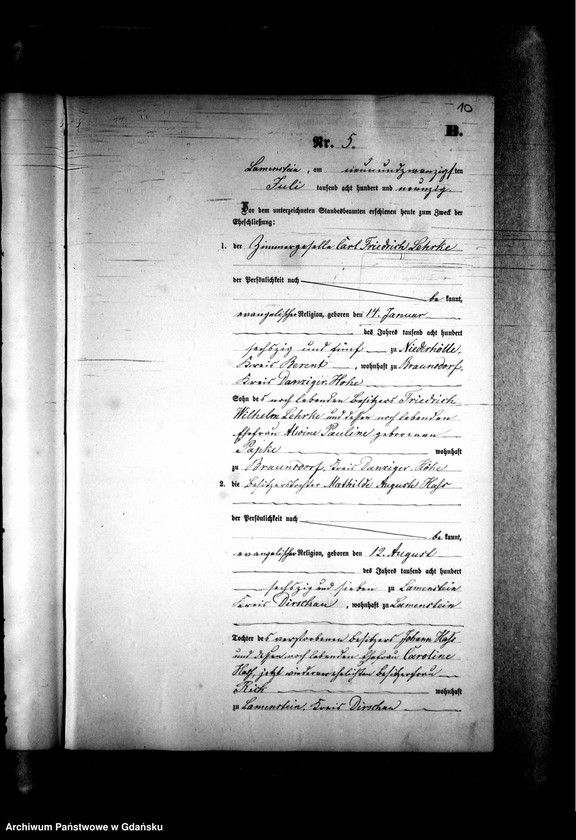 10
B.
Nr. 5.
Lamenstein, am neunundzwanzigsten
Juli tausend acht hundert und neunzig.
Vor dem unterzeichneten Standesbeamten erschienen heute zum Zweck der
Eheschließung:
1. der Zimmergeselle Carl Friedrich Lehrke
der Persönlichkeit nach
be kannt,
evangelischer Religion, geboren den 14. Januar
des Jahres tausend acht hundert
sechszig und fünf zu Niederhölle,
Kreis Berent, wohnhaft zu Braunsdorf,
Kreis Danziger Höhe
Sohn des noch lebenden Besitzers Friedrich
Wilhelm Lehrke und dessen noch lebenden
Ehefrau Alwine Pauline geborenen
Papke wohnhaft
zu Braunsdorf, Kreis Danziger Höhe
2. die Besitzerstochter Mathilde August Hass
der Persönlichkeit nach
be kannt,
evangelischer Religion, geboren den 12. August
des Jahres tausend acht hundert
sechszig und sieben zu Lamenstein
Kreis Dirschau, wohnhaft zu Lamenstein
Tochter des verstorbenen Besitzers Johann Hass
und dessen noch lebenden Ehefrau Caroline
Hass, jetzt wiederverehelichten Besitzerfrau
wohnhaft
zu Lamenstein, Kreis Dirschau
Archiwum Państwowe w Gdańsku